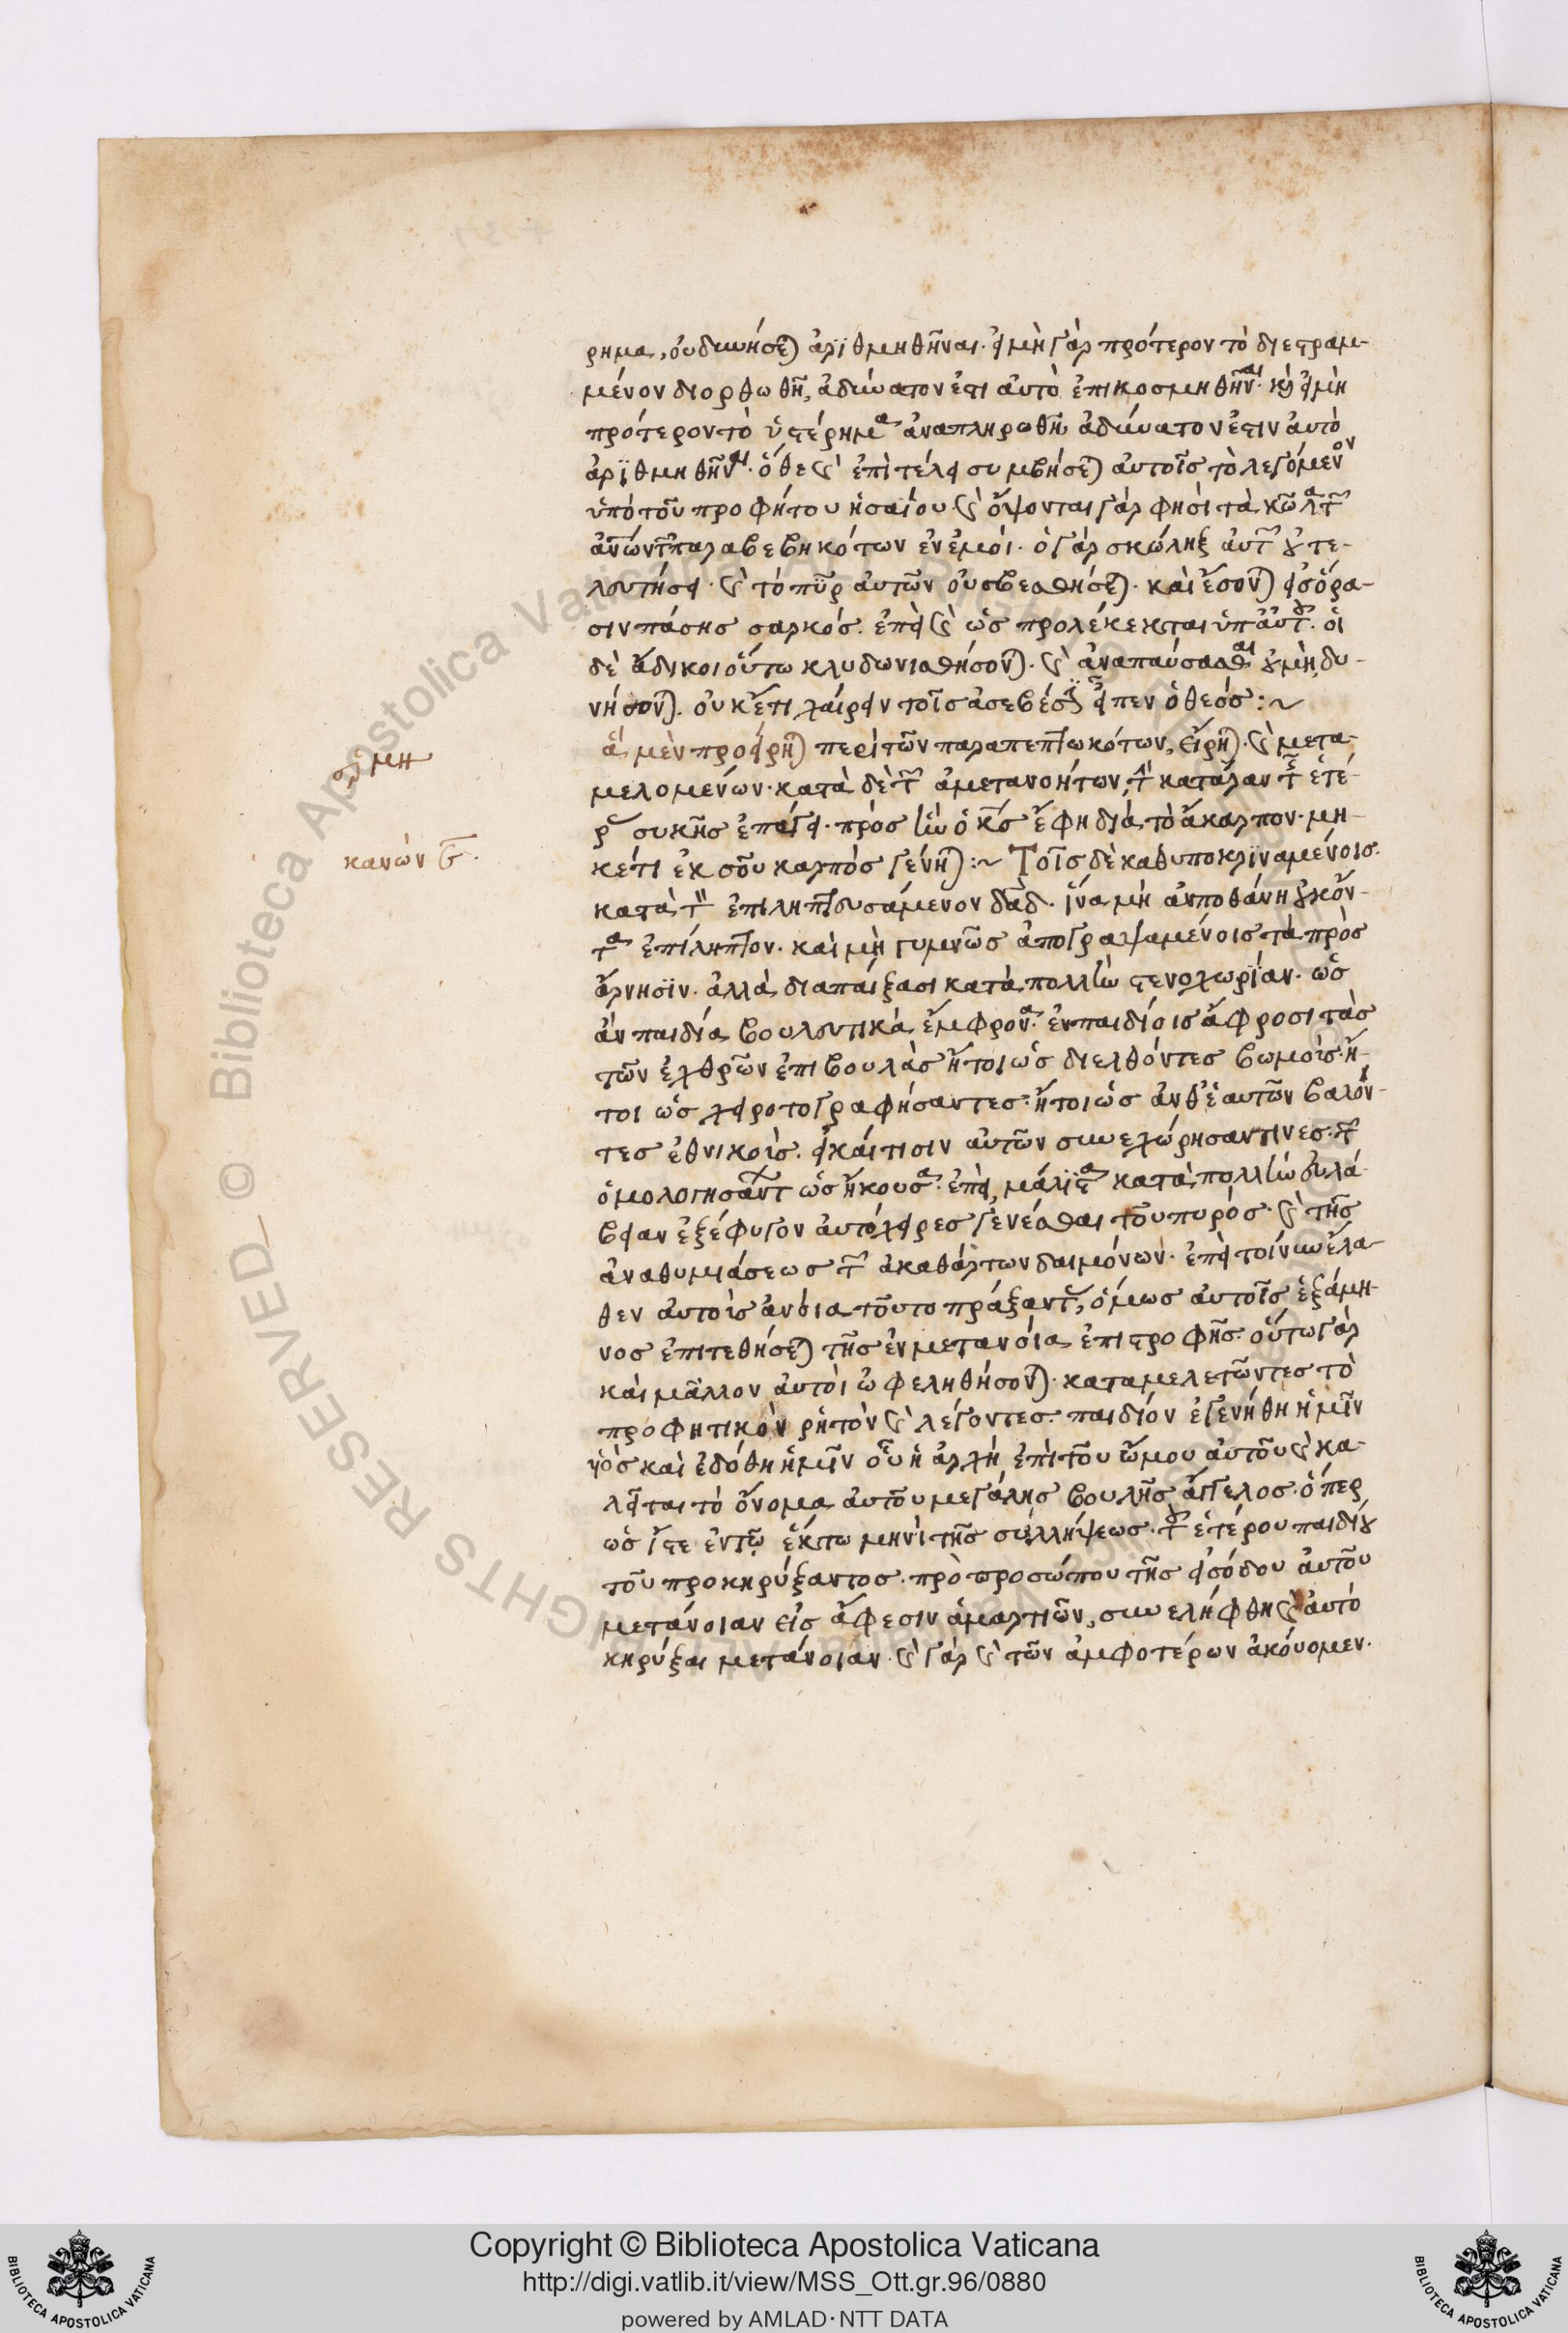 ρημα, οὐ δυνήσεται ἀριθμηθῆναι· εἰ μὴ γὰρ πρότερον τὸ διεστραμ-
μένον διορθωθῆ, ἀδύνατον ἔτι αὐτὸ ἐπικοσμηθῆναι· καὶ εἰ μὴ
πρότερον τὸ ὑστέρημα ἀναπληρωθῆ ἀδύνατον ἐστιν αὐτὸ
ἀριθμηθῆναι· ὅθεν καὶ ἐπὶ τέλει συμβήσεται αὐτοῖς τὸ λεγόμενον
ὑπὸ τοῦ προφήτου ἡσαΐου· καὶ ὄψονται γάρ φησι τὰ κῶλα τῶν
ἀνῶν τῶν παραβεβηκότων ἐν ἐμοί· ὁ γὰρ σκώληξ αὐτῶν οὐ τε-
λευτήσει· καὶ τὸ πῦρ αὐτῶν οὐ σβεσθήσεται· καὶ ἔσονται εἰς ὅρα-
σιν πάσης σαρκός. ἐπεὶ καὶ ὡς προλέλεκται ὑπ' αὐτοῦ· οἱ
δὲ ἄδικοι οὕτω κλυδωνισθήσονται· καὶ ἀναπαύσασθαι οὐ μὴ δυ-
νήσονται. οὐκ ἔστι χαίρειν τοῖς ἀσεβέσιν εἶπεν ὁ θεός :~
ἃ μὲν προείρηται περὶ τῶν παραπεπτωκότων, εἴρηται· καὶ μετα-
μελομένων· κατὰ δὲ τῶν ἀμετανοήτων,
συκῆς ἐπάγει· πρὸς ἣν ὁ κς ἔφη διὰ τὸ ἄκαρπον· μη-
κέτι ἐκ σοῦ καρπὸς γένηται :~ Τοῖς δὲ καθυποκριναμένοις
κατὰ τὸν ἐπιληπτευσάμενον δαδ· ἵνα μὴ ἀποθάνη οὐκ ὄν-
τα ἐπίληπτον· καὶ μὴ γυμνῶς ἀπογραψαμένοις τὰ πρὸς
ἄρνησιν· ἀλλὰ διαπαίξασι κατὰ πολλὴν στενοχωρίαν· ὡς
ἂν παιδία βουλευτικὰ ἔμφρονα· ἐν παιδίοις ἄφροσι τὰς
τῶν ἐχθρῶν ἐπιβουλὰς ἤτοι ὡς διελθόντες βωμοῖς· ἤ-
τοι ὡς χειροτογραφήσαντες· ἤτοι ὡς ἀνθ' ἑαυτῶν βαλόν-
τες ἐθνικοῖς. εἰ καί τισιν αὐτῶν συνεχώρησαν τινες τῶν
ὁμολογησάντων ὡς ἤκουσα· ἐπεὶ μάλιστα κατὰ πολλὴν εὐλά-
βειαν ἐξέφυγον αὐτόχειρες γενέσθαι τοῦ πυρός· καὶ τῆς
ἀναθυμιάσεως τῶν ἀκαθάρτων δαιμόνων· ἐπεὶ τοίνυν ἔλα-
θεν αὐτοῖς ἀνοία τοῦτο πράξαντες, ὅμως αὐτοῖς ἑξάμη-
νος ἐπιτεθήσεται τῆς ἐν μετανοία ἐπιστροφῆς· οὕτω γὰρ
καὶ μᾶλλον αὐτοὶ ὠφεληθήσονται· καταμελετῶντες τὸ
προφητικὸν ῥητὸν καὶ λέγοντες· παιδίον ἐγενήθη ἡμῖν
υἱὸς καὶ ἐδόθη ἡμῖν οὗ ἡ ἀρχὴ ἐπὶ τοῦ ὤμου αὐτοῦ καὶ κα-
λεῖται τὸ ὄνομα αὐτοῦ μεγάλης βουλῆς ἄγγελος· ὅπερ
ὡς ἴστε ἐν τῷ ἕκτω μηνὶ τῆς συλλήψεως τοῦ ἑτέρου παιδίου
τοῦ προκηρύξαντος· πρὸ προσώπου τῆς εἰσόδου αὐτοῦ
μετάνοιαν εἰς ἄφεσιν ἁμαρτιῶν, συνελήφθη καὶ αὐτὸ
κηρύξαι μετάνοιαν· καὶ γὰρ καὶ τῶν ἀμφοτέρων ἀκούομεν·
κανὼν
Copyright © Biblioteca Apostolica Vaticana
http://digi.vatlib.it/view/MSS_Ott.gr.96/0880
powered by AMLAD · NTT DATA
BIBLIOTECA APOSTOLICA VATICANA
BIBLIOTECA APOSTOLICA VATICANA